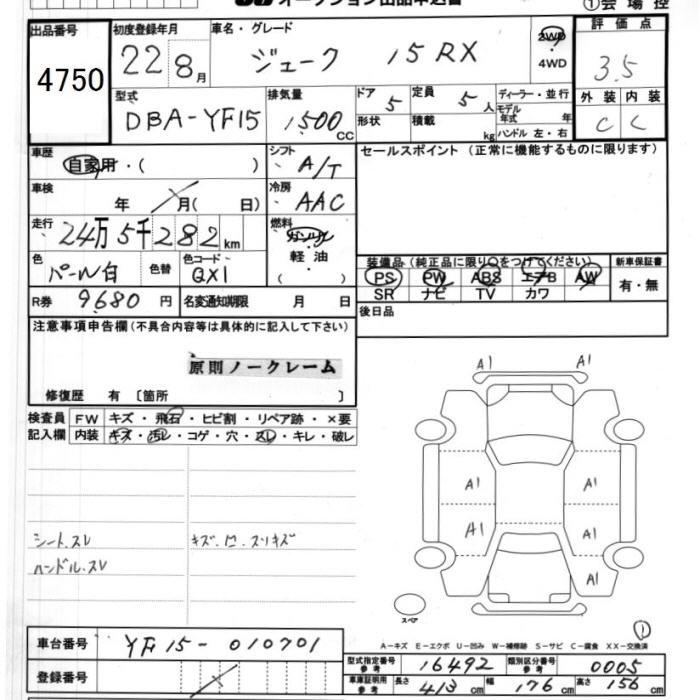 オークション出品申込書
①会場控
出品番号 初度登録年月 車名・グレード 2WD 評価点
4750 22 8月 ジューク 15RX 4WD 3.5
型式 排気量 ドア 5 定員 5人 ディーラー・並行 外装 内装
DBA-YF15 1500cc 形状 積載 kg モデル年式 年 C C
ハンドル 左・右
車歴 自家用・( ) シフト A/T セールスポイント (正常に機能するものに限ります)
車検 年 月( 日) 冷房 AAC
走行 24万5千282km 燃料 ガソリン
軽油
( )
色 パール白 色替 色コード QX1 装備品(純正品に限り○をつけてください) 新車保証書
PS PW ABS エアB AW 有・無
SR ナビ TV カワ
R券 9680円 名変通知期限 月 日 後日品
注意事項申告欄(不具合内容等は具体的に記入して下さい)
原則ノークレーム
修復歴 有 〔箇所 〕
検査員 FW キズ・飛石・ヒビ割・リペア跡・×要
記入欄 内装 キズ・汚レ・コゲ・穴・スレ・キレ・破レ
A1 A1
A1 A1
A1 A1
A1
シート.スレ キズ.凹.スリキズ
ハンドル.スレ
スペア
①
A−キズ E−エクボ U−凹み W−補修跡 S−サビ C−腐食 XX−交換済
車台番号 YF15-010701
型式指定番号 参考 16492 類別区分番号 参考 0005
登録番号
車庫証明用 参考 長さ 413cm 幅 176cm 高さ 156cm